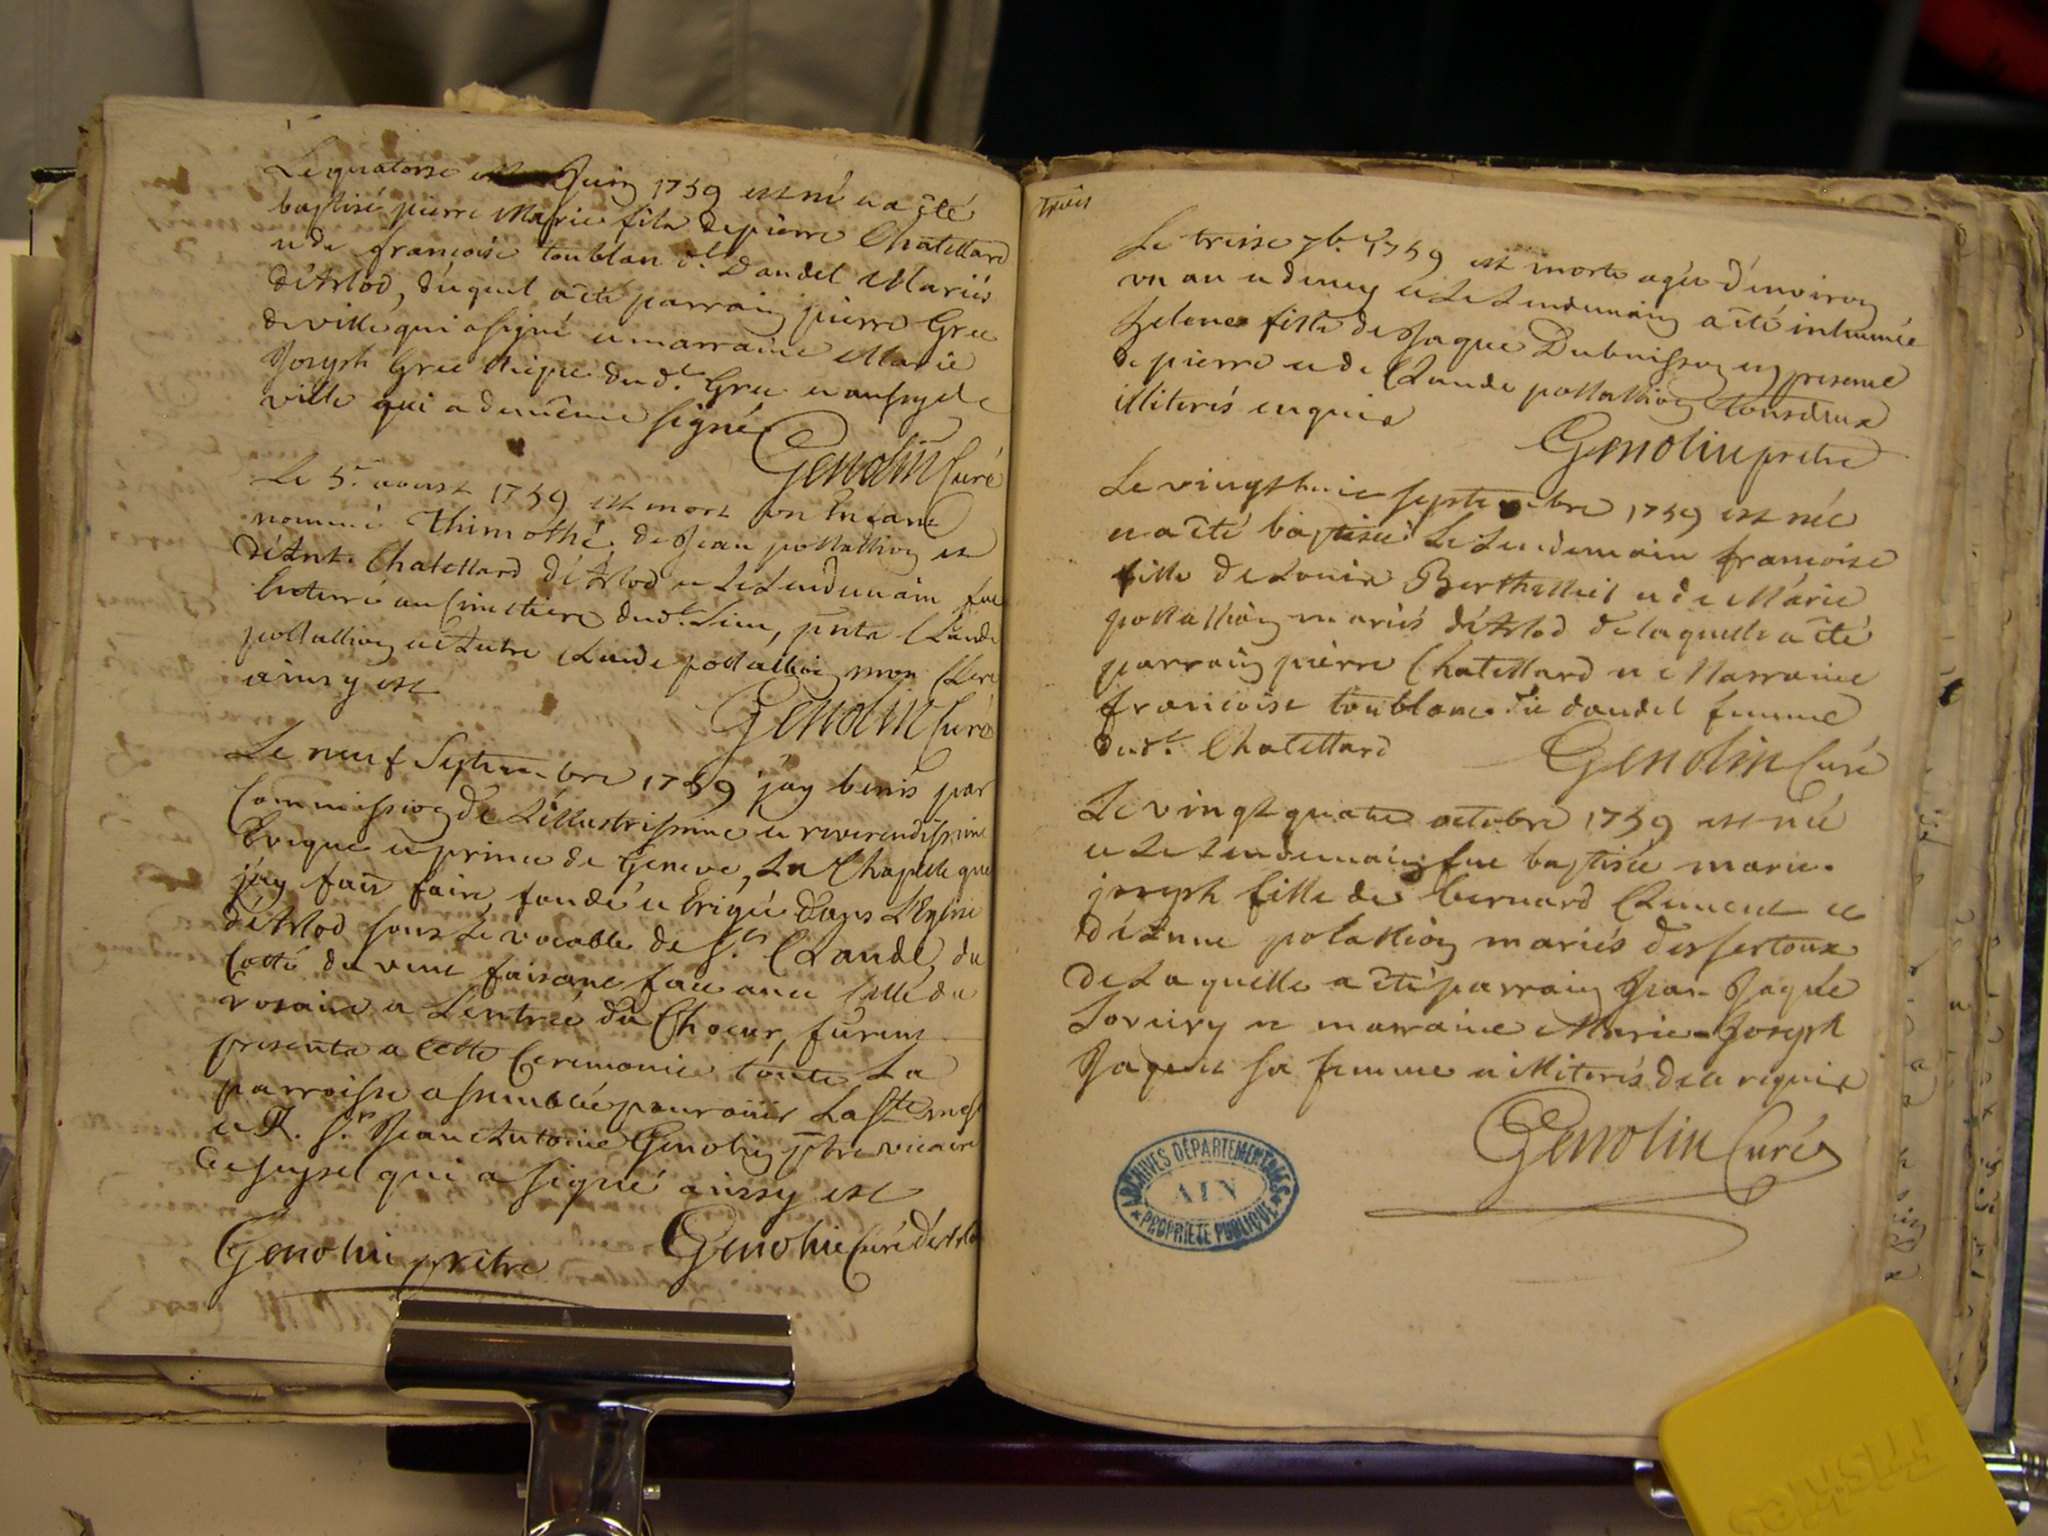 Le quatorse Juin 1759 est né et a été
baptisé pierre Marie fils de pierre Chatellard
et de francoise toublan dt. Daudel Mariés
d'Arlod, duquel a été parrain pierre Gree
de ville qui a signé et marraine Marie
Joseph Gree Niepce dud.t Gree
ville qui a de même signé
Genolin Curé
Le 5.e aoust 1759 est mort un Enfant
nommé Thimothé de Jean pollallion et
d'Ant. Chatellard d'Arlod et Le Lendemain fut
Enterré au Cimetiere dud.t Lieu, pnts Claude
pollallion et autre Claude pollallion mon Clerc
ainsy est
Genolin Curé
Le neuf Septembre 1759 j'ay benis par
Commission de L'illustrissime et reverendissime
Eveque et prince de Geneve, La Chapelle que
j'ay fait faire, fondé et Erigé dans L'Eglise
d'Arlod sous Le vocable de St. Claude, du
Cotté du vent faisant face avec celle du
rosaire a L'entrée du Choeur, furent
presents a cette Ceremonie toute La
parroisse assemblée pour ouir La Ste messe
et R. Sr. Jean Antoine Genolin ptre vicaire
de Seyssel qui a signé ainsy est
Genolin prêtre Genolin Curé d'Arlod
Trois
Le treise 7b.e 1759 est morte agée d'environ
un an et demy et Le Lendemain a été inhumée
helene fille de Jaque Dubuisson en presence
de pierre et de Claude pollallion tous deux
illiterés enquis
Genolin pretre
Le vingt huit septembre 1759 est née
et a été baptisée Le Lendemain francoise
fille de Louis Berthelliet et de Marie
pollallion mariés d'Arlod de laquelle a été
parrain pierre Chatellard et Marraine
francoise toublanc dit daudel femme
dud.t Chatellard
Genolin Curé
Le vingt quatre octobre 1759 est née
et Le Lendemain fut baptisée marie
joseph fille de bernard Clement et
d'Anne polallion mariés des sertoux
de Laquelle a été parrain Jean Jaque
et marraine Marie-Joseph
Jaquet sa femme illiterés de ce requis
Genolin Curé
ARCHIVES DÉPARTEMENTALES
AIN
PROPRIÉTÉ PUBLIQUE